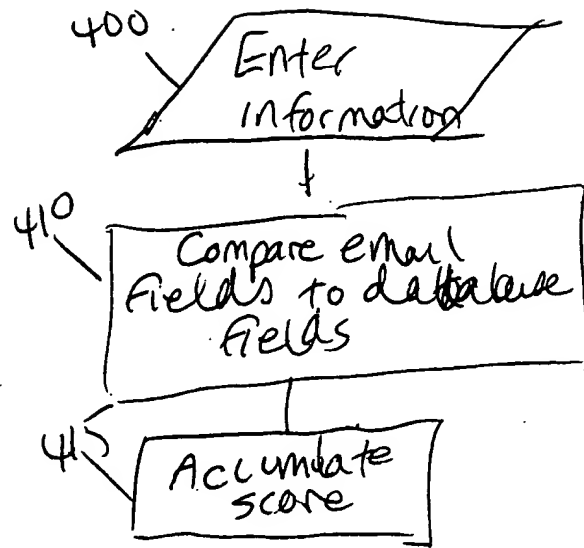 400
Enter
information
410
Compare email
fields to database
fields
415
Accumulate
score